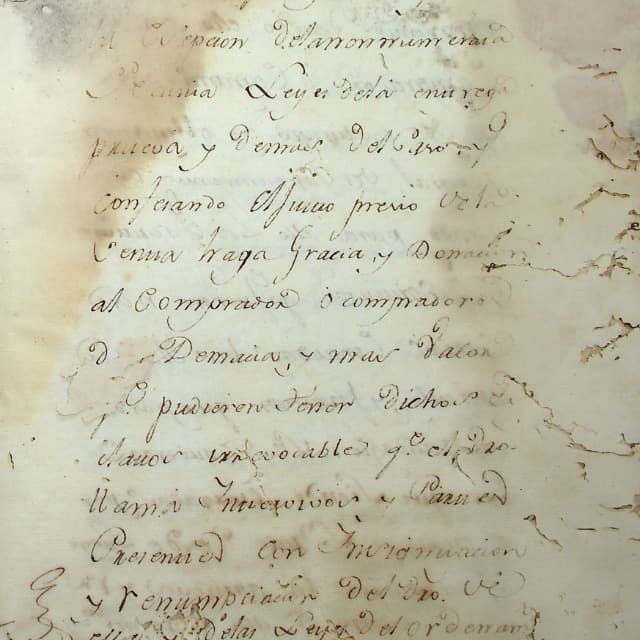 la Exepcion delanonnumerata
Pecunia Leyes dela entrega
prueva, y Demas del Caso y
confesando el Juicio precio de la
Venta haga Gracia, y Donacion
al Comprador o compradores
d Demacia, y mas Valor
q.e pudieren tener dichos Es
clavos irrevocable q.e el Dro
llama Intervivos y
Presente con Insignuacion
y renumpciacion del dro. de
y delas Leyes del ordenam